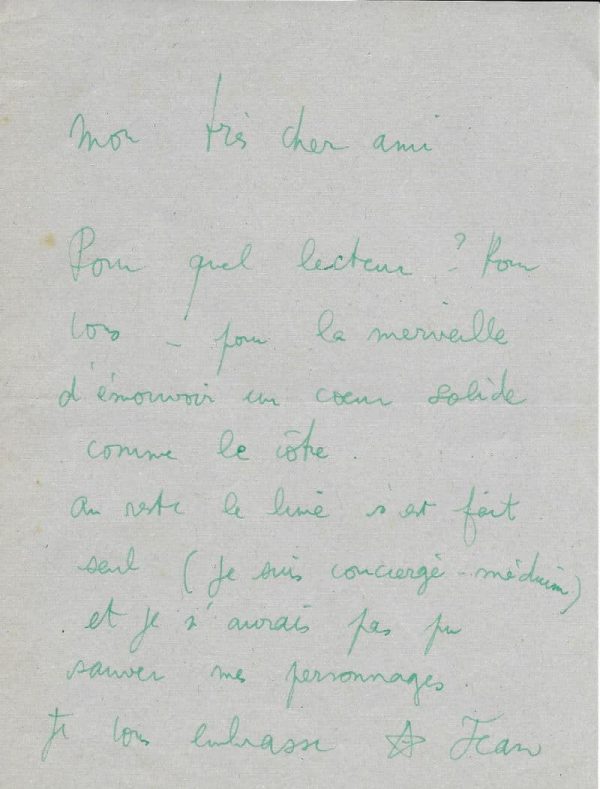 Mon très cher ami
Pour quel lecteur ? Pour
vous – pour la merveille
d'émouvoir un cœur solide
comme le vôtre.
Au reste le livre s'est fait
seul (Je suis concierge – médium)
et je n'aurais pas pu
sauver mes personnages.
Je vous embrasse ☆ Jean